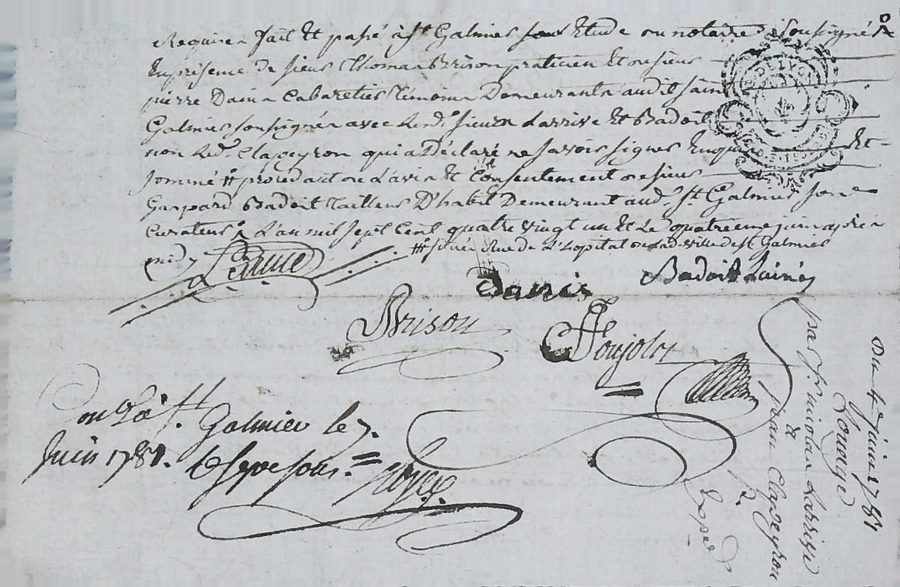 Requis fait et passé à St Galmier sous Etude du notaire soussigné
En présence de sieur Thomas Brison praticien et de sieur
pierre Dain Cabaretier Témoins Demeurant audit saint
Galmier soussignés avec led. sieur Larrive et Badoit
non led. Clapeyron qui a Déclaré ne savoir signer Enquis Et
sommé # procédant de l'avis et Consentement de sieur
Gaspard Badoit Tailleur D'habit Demeurant aud. St Galmier son
Curateur L'an mil sept Cent quatre vingt un et Le quatrieme juin après
midi
# située Rue de l'hopital de lad. ville de St Galmier
Larrive
Badoit Lainé
Brison
Ponjolat
St Galmier le 7.
Juin 1781.
Du 4e juin 1781
Louage
par Sr nicolas Larrive
à
jean Clapeyron
Expé